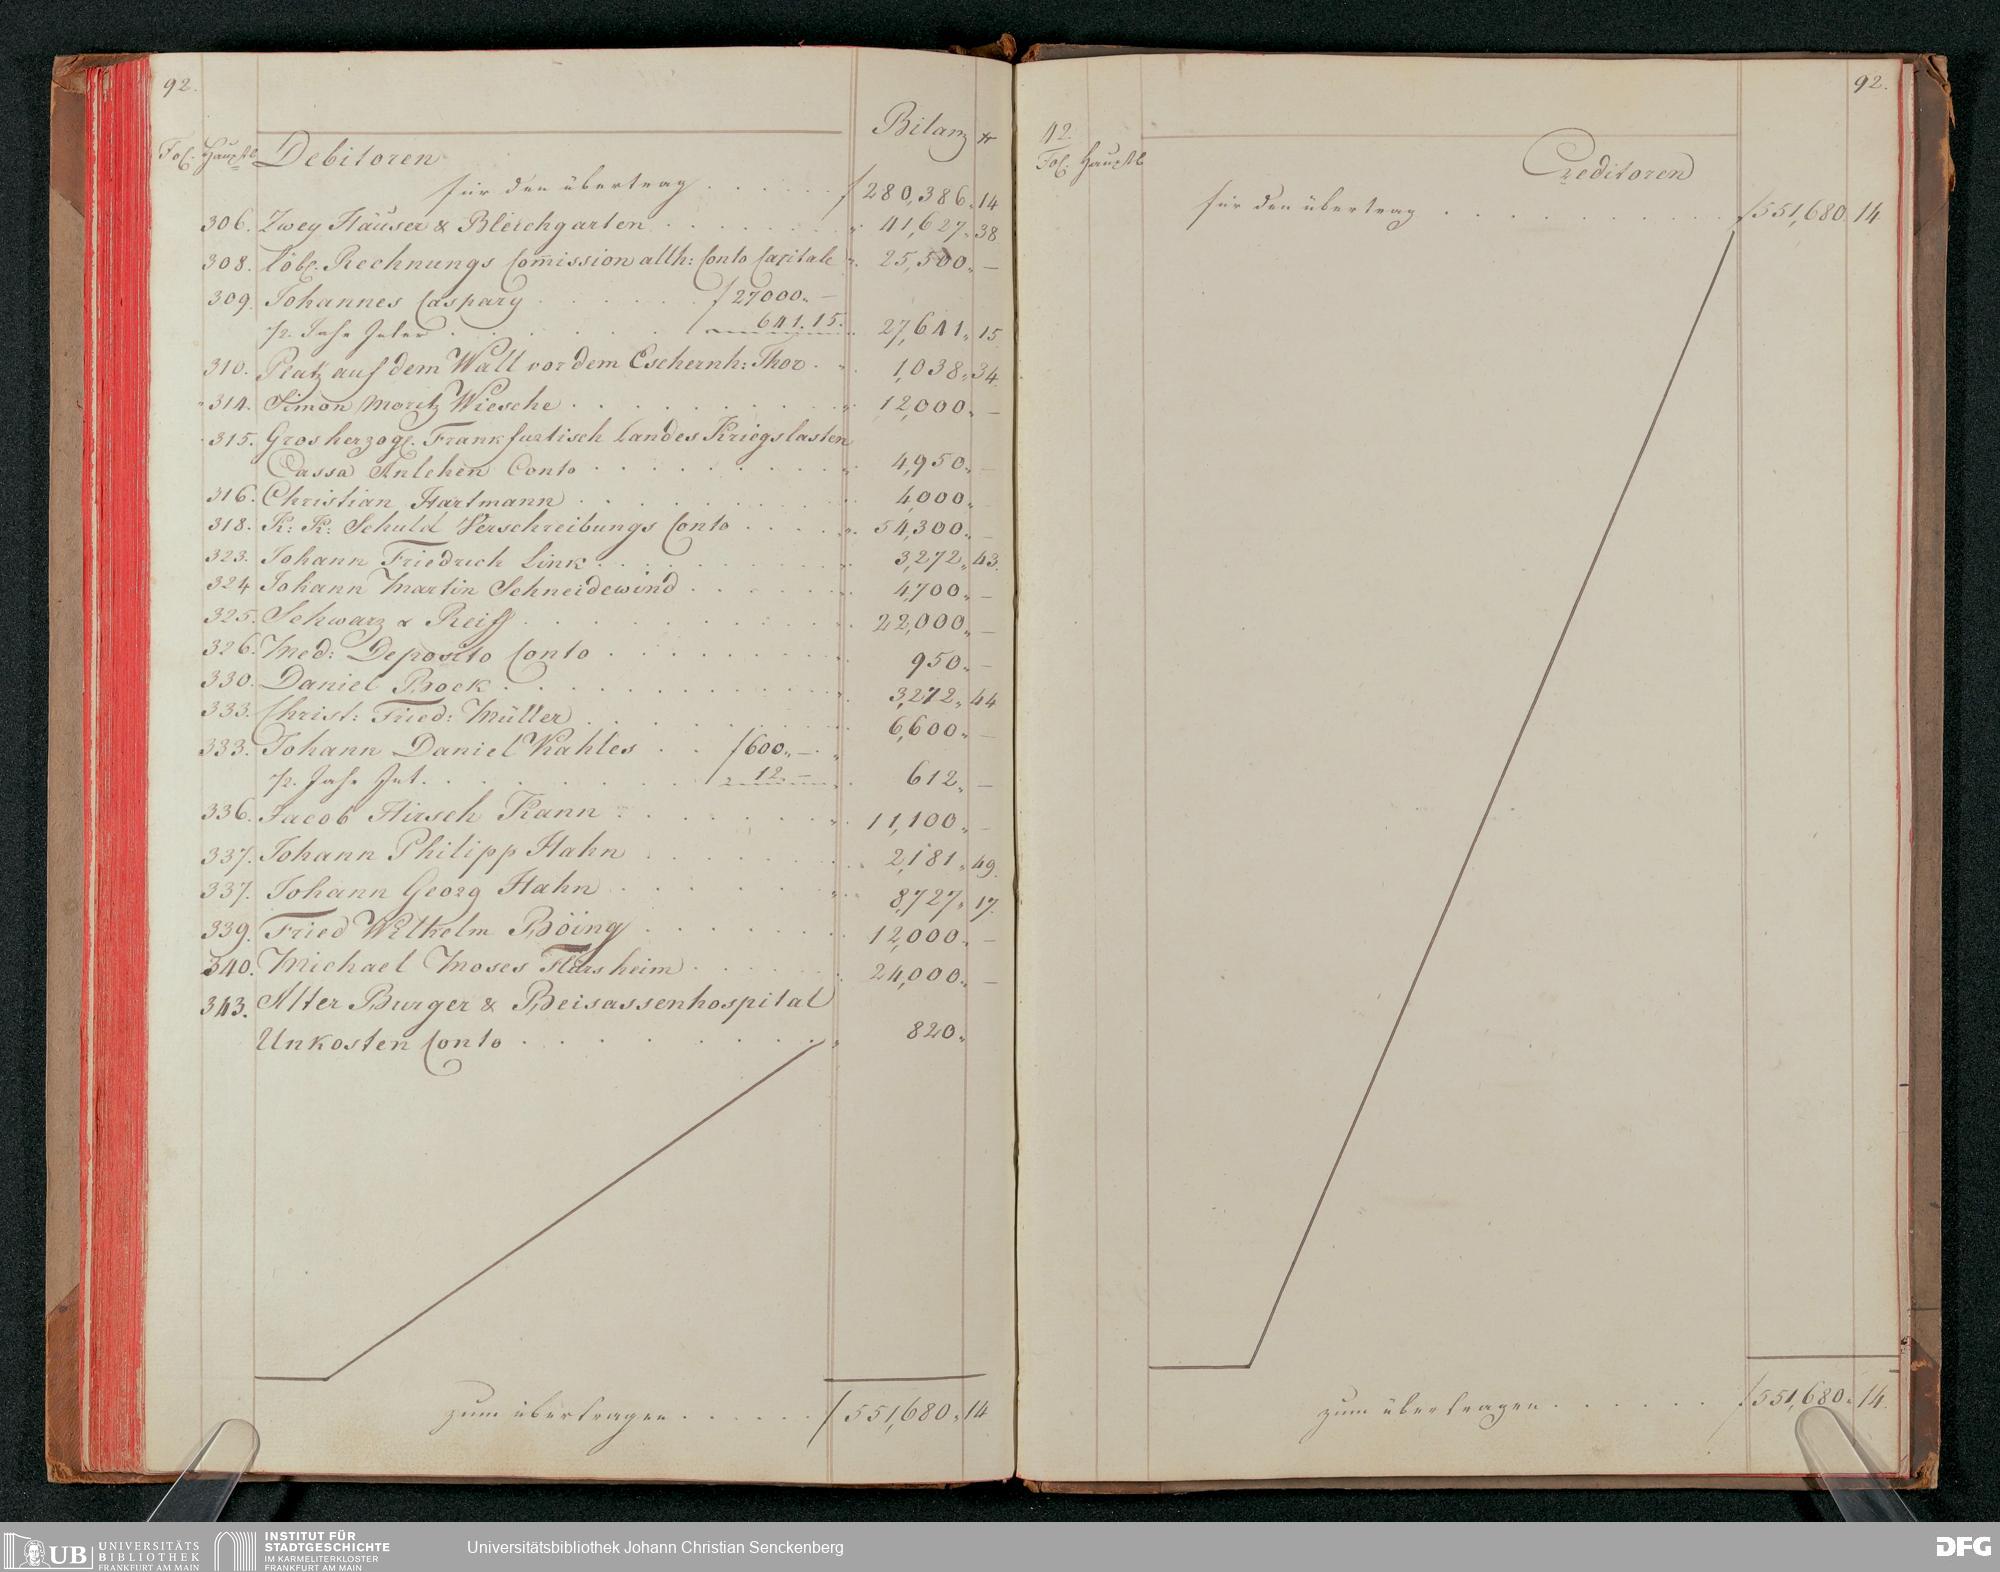 92.
Bilanz xr
Fol. Hauptb Debitoren
für den übertrag . . . . . . f 280,386.14
306. Zwey Häuser & Bleichgarten . . . . . . „ 41,627„38
308. löbl. Rechnungs Com̄ission allh: Conto Capitale „ 25,500„ —
309. Johannes Caspary . . . . . . f 27000„ —
1/2. Jahr Inter. . . . . . . „ 641.15. „ 27,641„15
310. Platz auf dem Wall vor dem Eschernh: Thor . „ 1,038„34.
314. Simon Moritz Wiesche . . . . . . „ 12,000„ —
315. Grosherzogl. Frankfurtisch Landes Kriegslasten
Cassa Anlehen Conto . . . . . . „ 4,950„ —
316. Christian Hartmann . . . . . . 4,000„
318. K: K: Schuld Verschreibungs Conto . . . . „ 54,300„ —
323. Johann Friedrich Link . . . . . . „ 3,272„43.
324 Johann Martin Schneidewind . . . . . „ 4,700„ —
325. Schwarz & Reiss . . . . . . 22,000„ —
326. Med: Deposito Conto . . . . . . „ 950„ —
330. Daniel Bock . . . . . . „ 3,272„44
333. Christ: Fried: Müller . . . . . . 6,600„ —
333. Johann Daniel Kahles . . f 600„ — . „
1/2. Jahr Int. . . . . . . „ 12. — „ 612„ —
336. Jacob Hirsch Kann . . . . . . „ 11,100„ —
337. Johann Philipp Hahn . . . . . . 2,181„49.
337. Johann Georg Hahn . . . . . . „ 8,727„17.
339. Fried Wilhelm Böing . . . . . . 12,000„ —
340. Michael Moses Flörsheim . . . . . . 24,000„ —
343. Alter Burger & Beisassenhospital
Unkosten Conto . . . . . . „ 820„
zum übertragen . . . . . . f 551,680„14
92.
42.
Fol. Hauptb Creditoren
für den übertrag . . . . . . f 551,680 14
zum übertragen . . . . . . f 551,680„14.
UB UNIVERSITÄTS
BIBLIOTHEK
FRANKFURT AM MAIN
INSTITUT FÜR
STADTGESCHICHTE
IM KARMELITERKLOSTER
FRANKFURT AM MAIN
Universitätsbibliothek Johann Christian Senckenberg
DFG